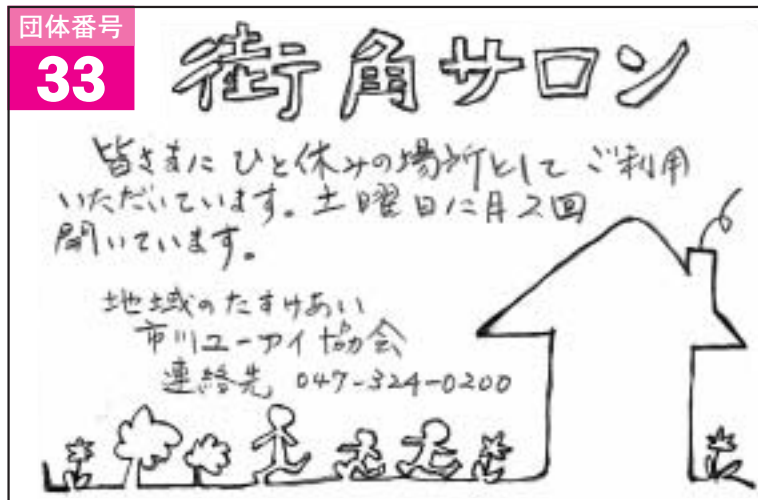 団体番号
33
街角サロン
皆さまに ひと休みの場所として ご利用
いただいています。土曜日に月2回
開いています。
地域のたすけあい
市川ユーアイ協会
連絡先 047-324-0200